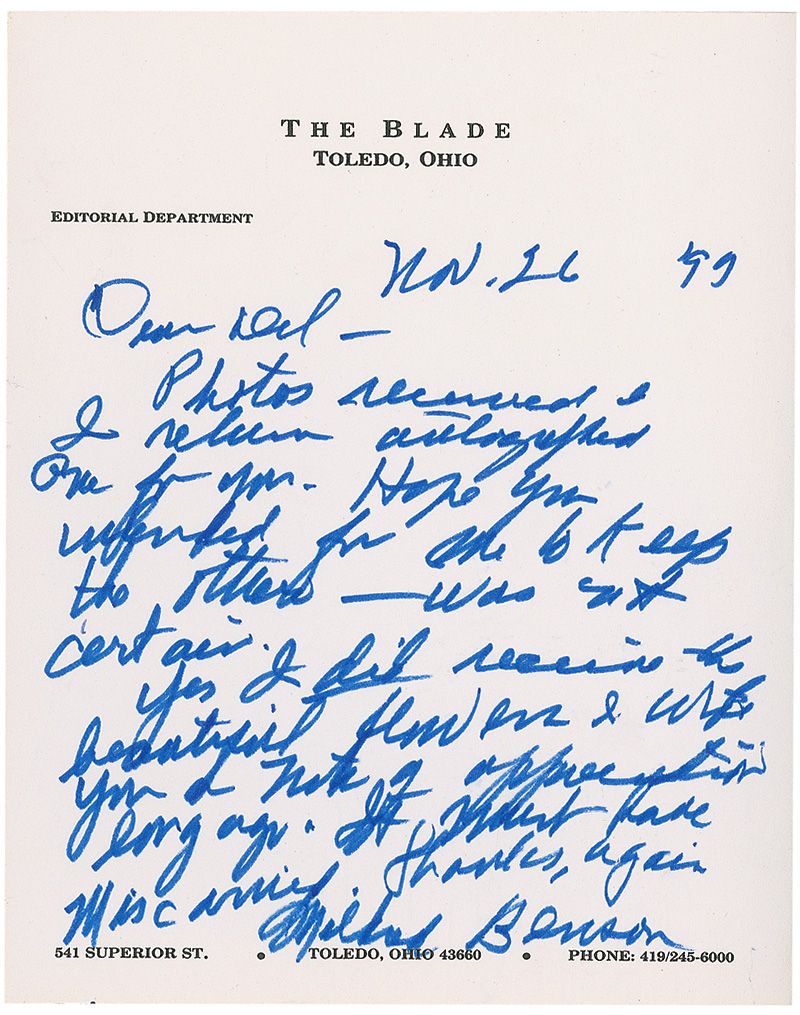 THE BLADE
TOLEDO, OHIO
EDITORIAL DEPARTMENT
Nov. 26 '99
Dear Del —
Photos received &
I return autographed
one for you. Hope you
intended for me to keep
the others — was not
certain.
Yes I did receive the
beautiful flowers & wrote
you a note of appreciation
long ago. It must have
miscarried. Thanks, again
Mildred Benson
541 SUPERIOR ST. • TOLEDO, OHIO 43660 • PHONE: 419/245-6000